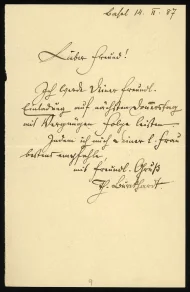 Basel 14. II. 87
Lieber Freund!
Ich werde Deiner freundl.
Einladung auf nächsten Donnerstag
mit Vergnügen Folge leisten
Indem ich mich Deiner l. Frau
bestens empfehle,
mit freundl. Gruß
Burckhardt